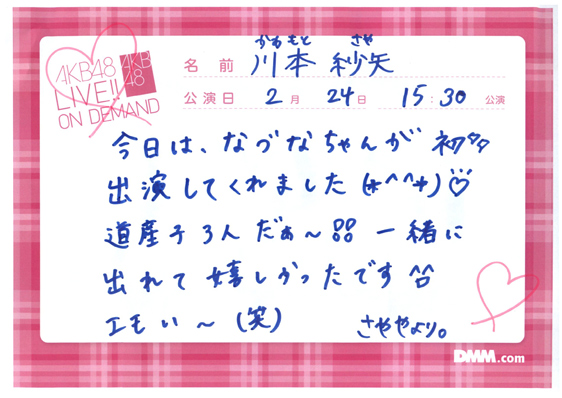 AKB48
LIVE!!
ON DEMAND
AKB
48
かわもと さや
名前 川本 紗矢
公演日 2月 24日 15:30 公演
今日は、なづなちゃんが 初々
出演してくれました(*^^*)♡
道産子3人だぁ〜 一緒に
出れて 嬉しかったです^^
エモい〜(笑) さややより。
DMM.com